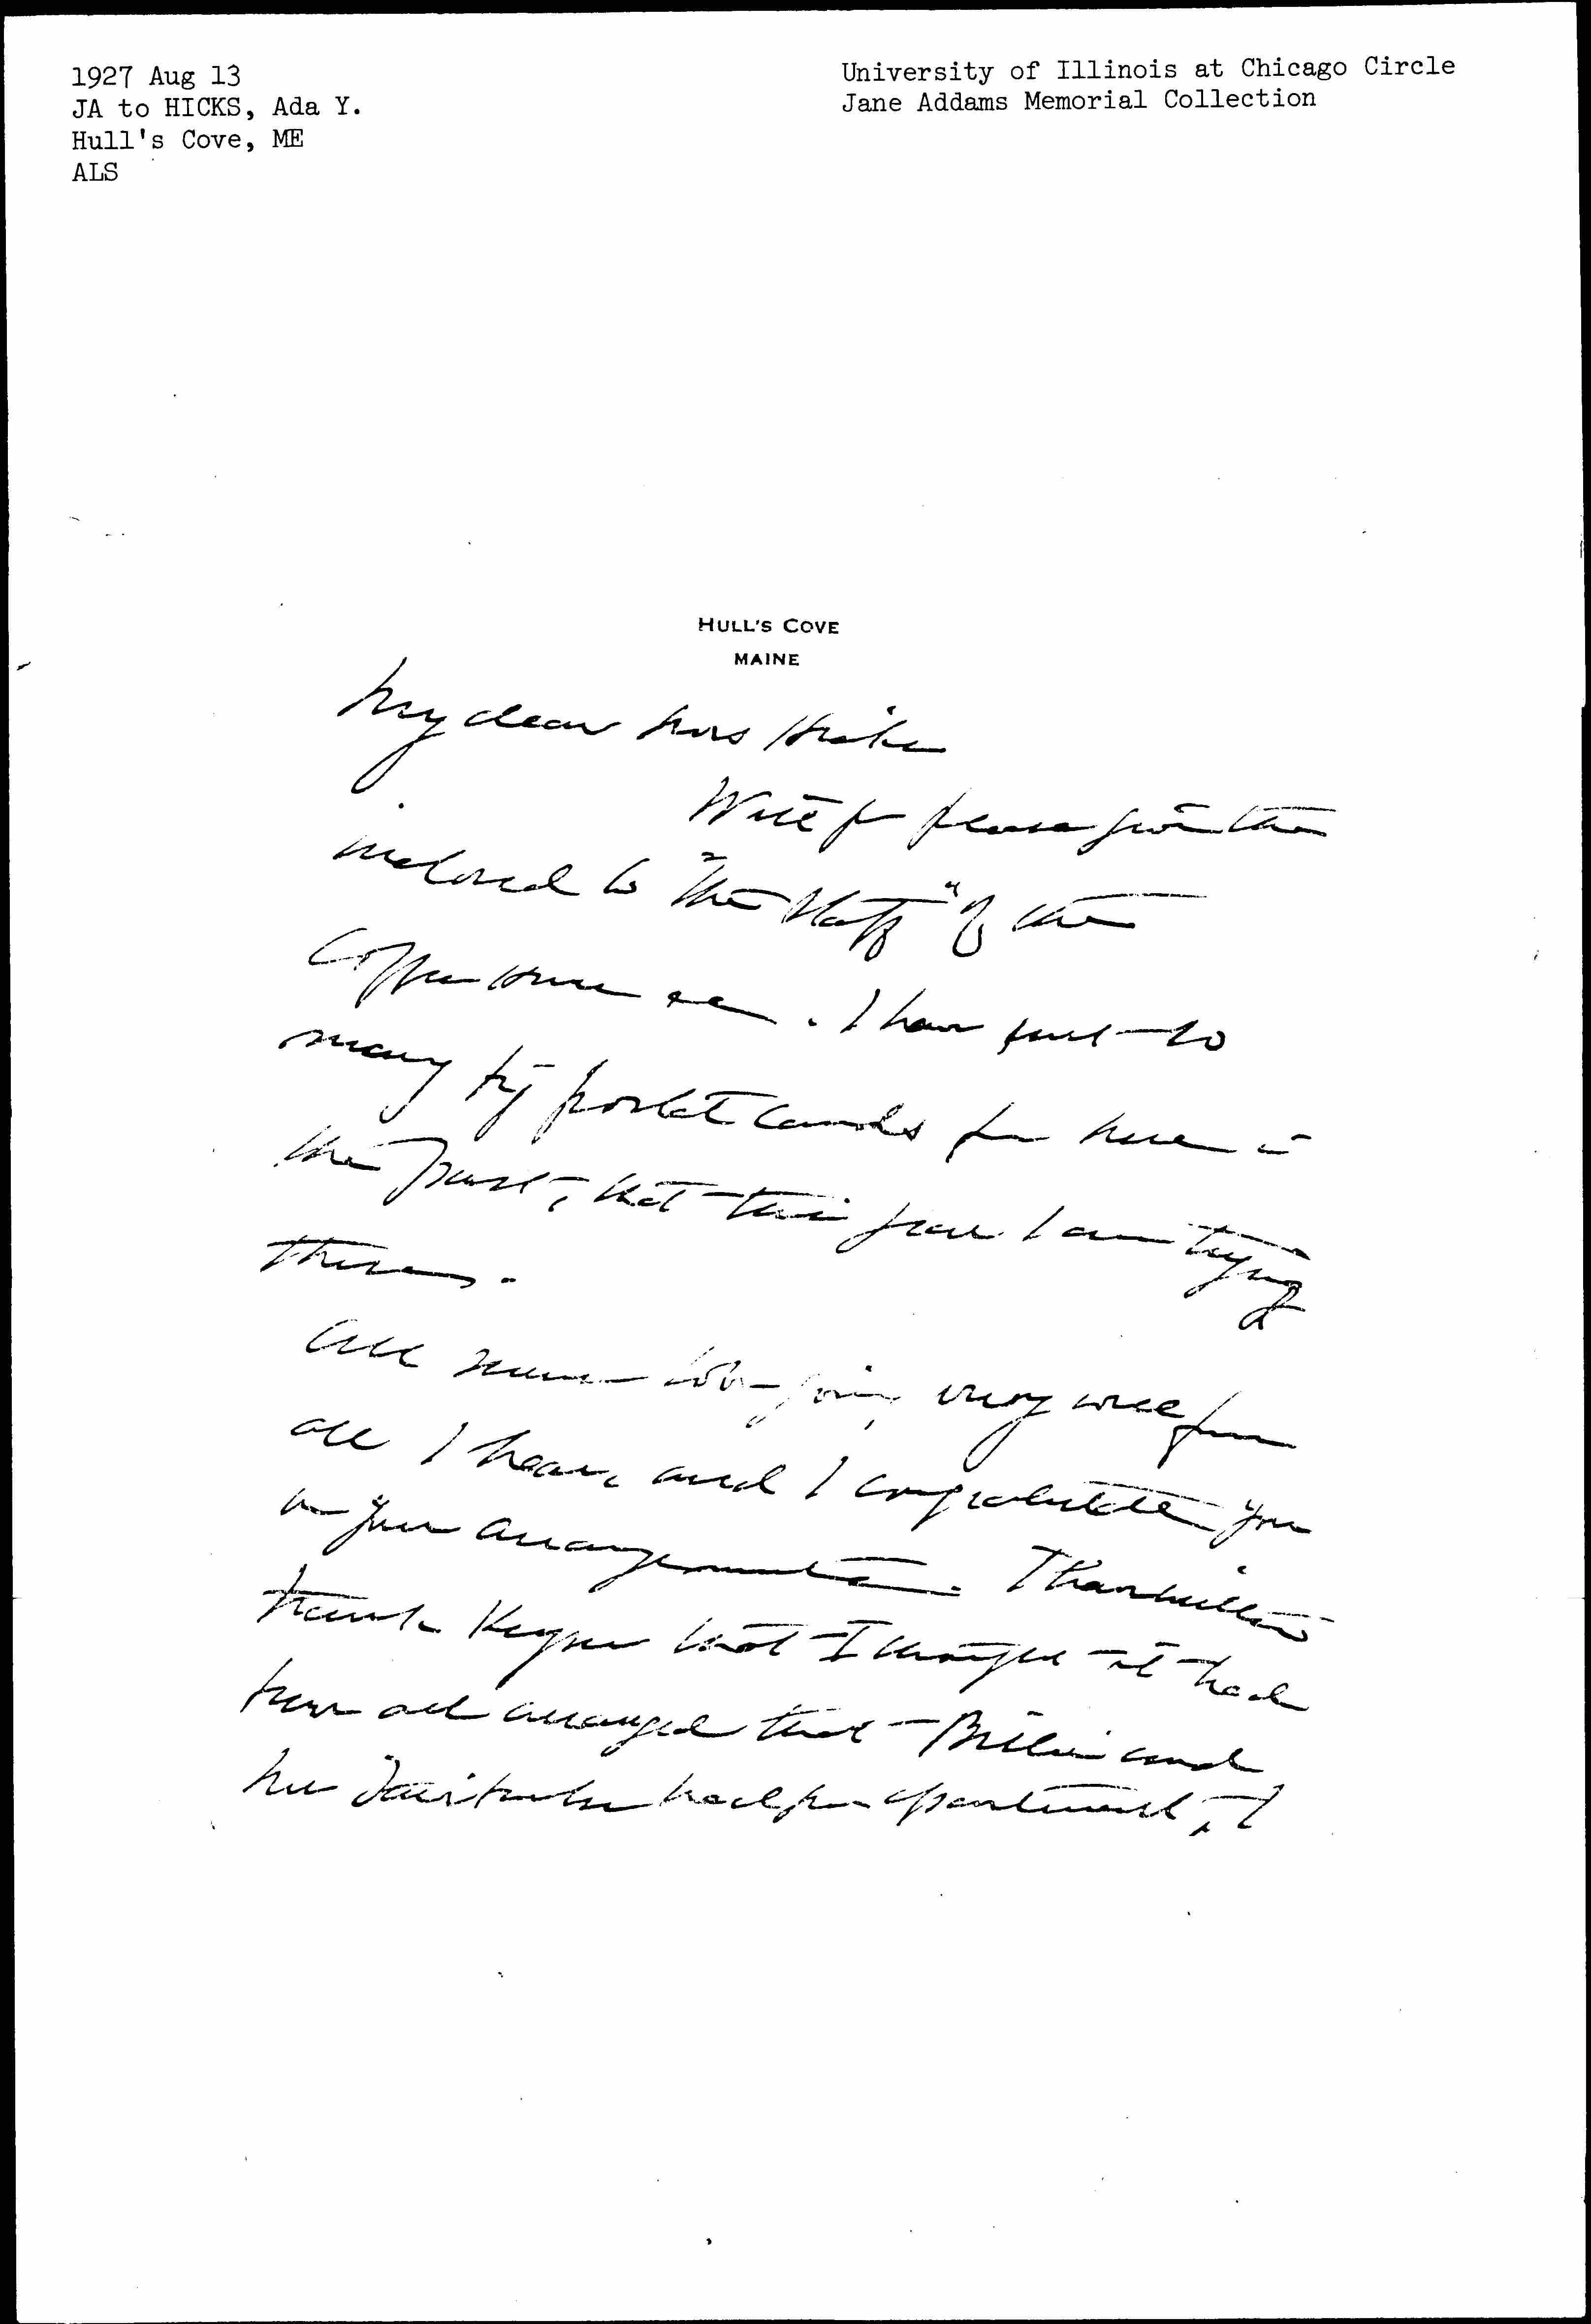 1927 Aug 13
JA to HICKS, Ada Y.
Hull's Cove, ME
ALS
University of Illinois at Chicago Circle
Jane Addams Memorial Collection
HULL'S COVE
MAINE
My dear Mrs Hicks
Will you please give the
inclosed to "The Staff" of the
Coffee House. I have sent so
many big postal cards from here in
the past, that this year I am trying
these.
All seems to be going very well from
all I hear, and I congratulate you
on your arrangements. I have written
Keyser that I thought it had
been all arranged that and
had apartment, I